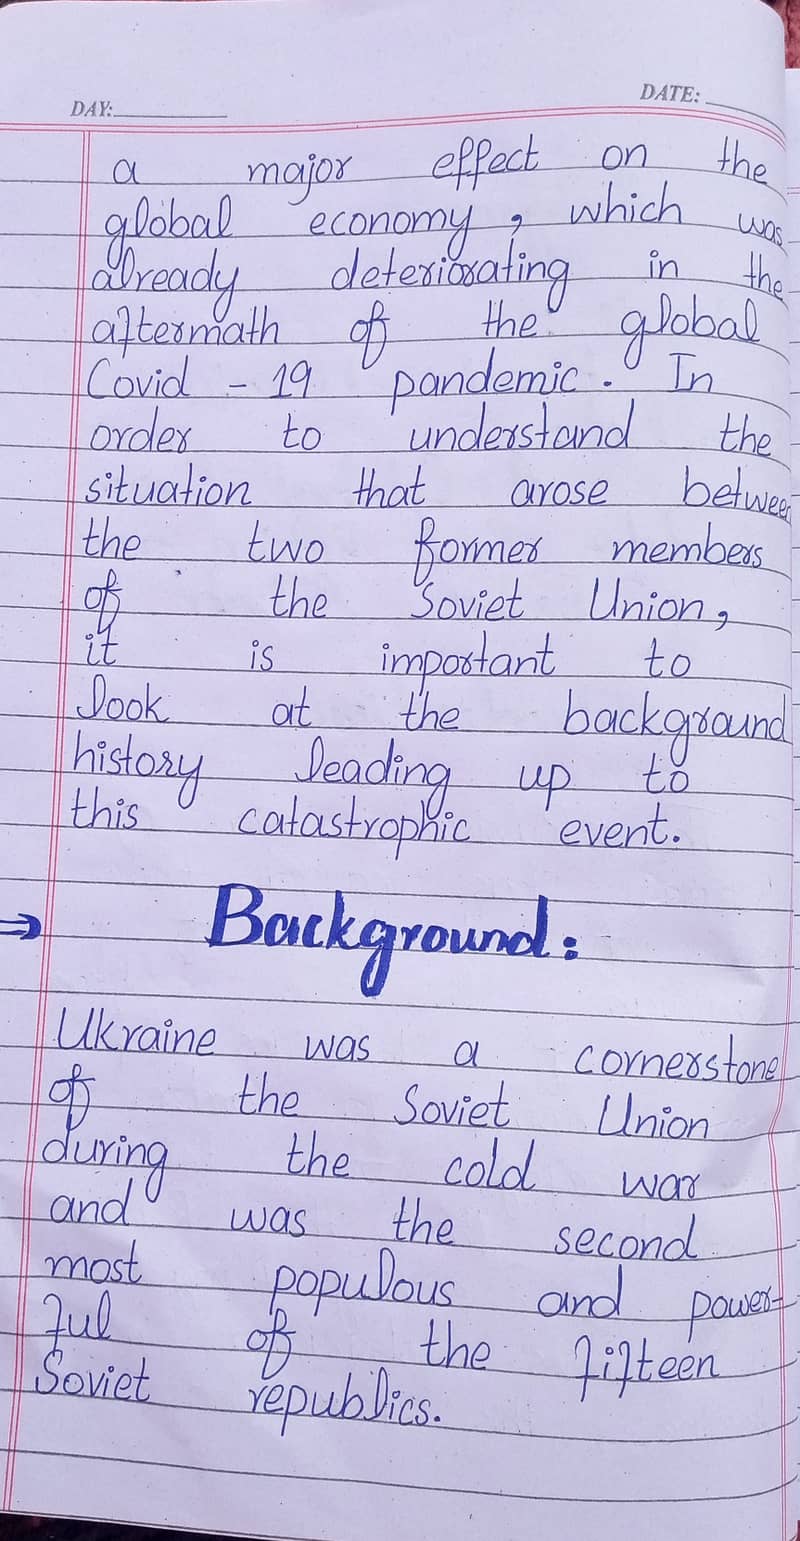 DAY: DATE:
a major effect on the
global economy, which was
already deteriorating in the
aftermath of the global
Covid - 19 pandemic. In
order to understand the
situation that arose between
the two former members
of the Soviet Union,
it is important to
look at the background
history leading up to
this catastrophic event.
⇒ Background:
Ukraine was a cornerstone
of the Soviet Union
during the cold war
and was the second
most populous and power-
ful of the fifteen
Soviet republics.